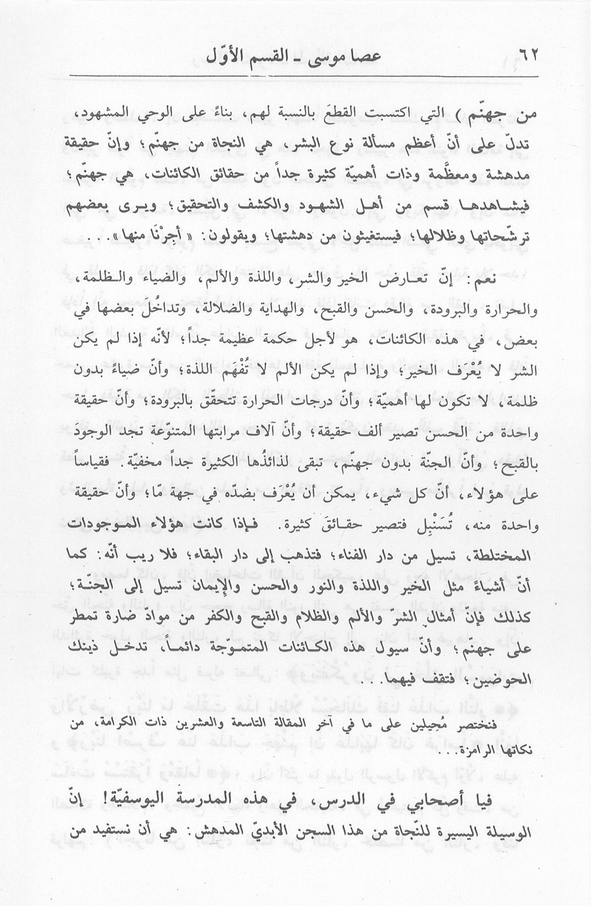 ٦٢ عصا موسى ـ القسم الأوّل
من جهنّم) التي اكتسبت القطعَ بالنسبة لهم، بناءً على الوحي المشهود،
تدلّ على أنّ أعظم مسألة نوع البشر، هي النجاة من جهنّم؛ وإنّ حقيقة
مدهشة ومعظَّمة وذات أهميّة كثيرة جداً من حقائق الكائنات، هي جهنّم؛
فيشاهدها قسم من أهل الشهود والكشف والتحقيق؛ ويرى بعضهم
ترشّحاتها وظلالها؛ فيستغيثون من دهشتها؛ ويقولون: «أجِرْنَا منها»...
نعم: إنّ تعارض الخير والشر، واللذة والألم، والضياء والظلمة،
والحرارة والبرودة، والحسن والقبح، والهداية والضلالة، وتداخُلَ بعضها في
بعض، في هذه الكائنات، هو لأجل حكمة عظيمة جداً؛ لأنه إذا لم يكن
الشر لا يُعْرَف الخير؛ وإذا لم يكن الألم لا تُفْهَم اللذة؛ وأنّ ضياءً بدون
ظلمة، لا تكون لها أهميّة؛ وأنّ درجات الحرارة تتحقّق بالبرودة؛ وأنّ حقيقة
واحدة من الحسن تصير ألف حقيقة؛ وأنّ آلاف مراتبها المتنوّعة تجد الوجودَ
بالقبح؛ وأنّ الجنّة بدون جهنّم، تبقى لذائذُها الكثيرة جداً مخفيّة. فقياساً
على هؤلاء، أنّ كل شيء، يمكن أن يُعْرَف بضدّه في جهة مّا؛ وأنّ حقيقة
واحدة منه، تُسَنْبِل فتصير حقائق كثيرة. فإذا كانت هؤلاء الموجودات
المختلطة، تسيل من دار الفناء؛ فتذهب إلى دار البقاء؛ فلا ريب أنّه: كما
أنّ أشياءً مثل الخير واللذة والنور والحسن والإيمان تسيل إلى الجنّة؛
كذلك فإنّ أمثال الشرّ والألم والظلام والقبح والكفر من موادّ ضارة تمطر
على جهنّم؛ وأنّ سيول هذه الكائنات المتموّجة دائماً، تدخل ذينك
الحوضين؛ فتقف فيهما...
فنختصر مُحِيلين على ما في آخر المقالة التاسعة والعشرين ذات الكرامة، من
نكاتها الرامزة...
فيا أصحابي في الدرس، في هذه المدرسة اليوسفيّة! إنّ
الوسيلة اليسيرة للنّجاة من هذا السجن الأبديّ المدهش: هي أن نستفيد من